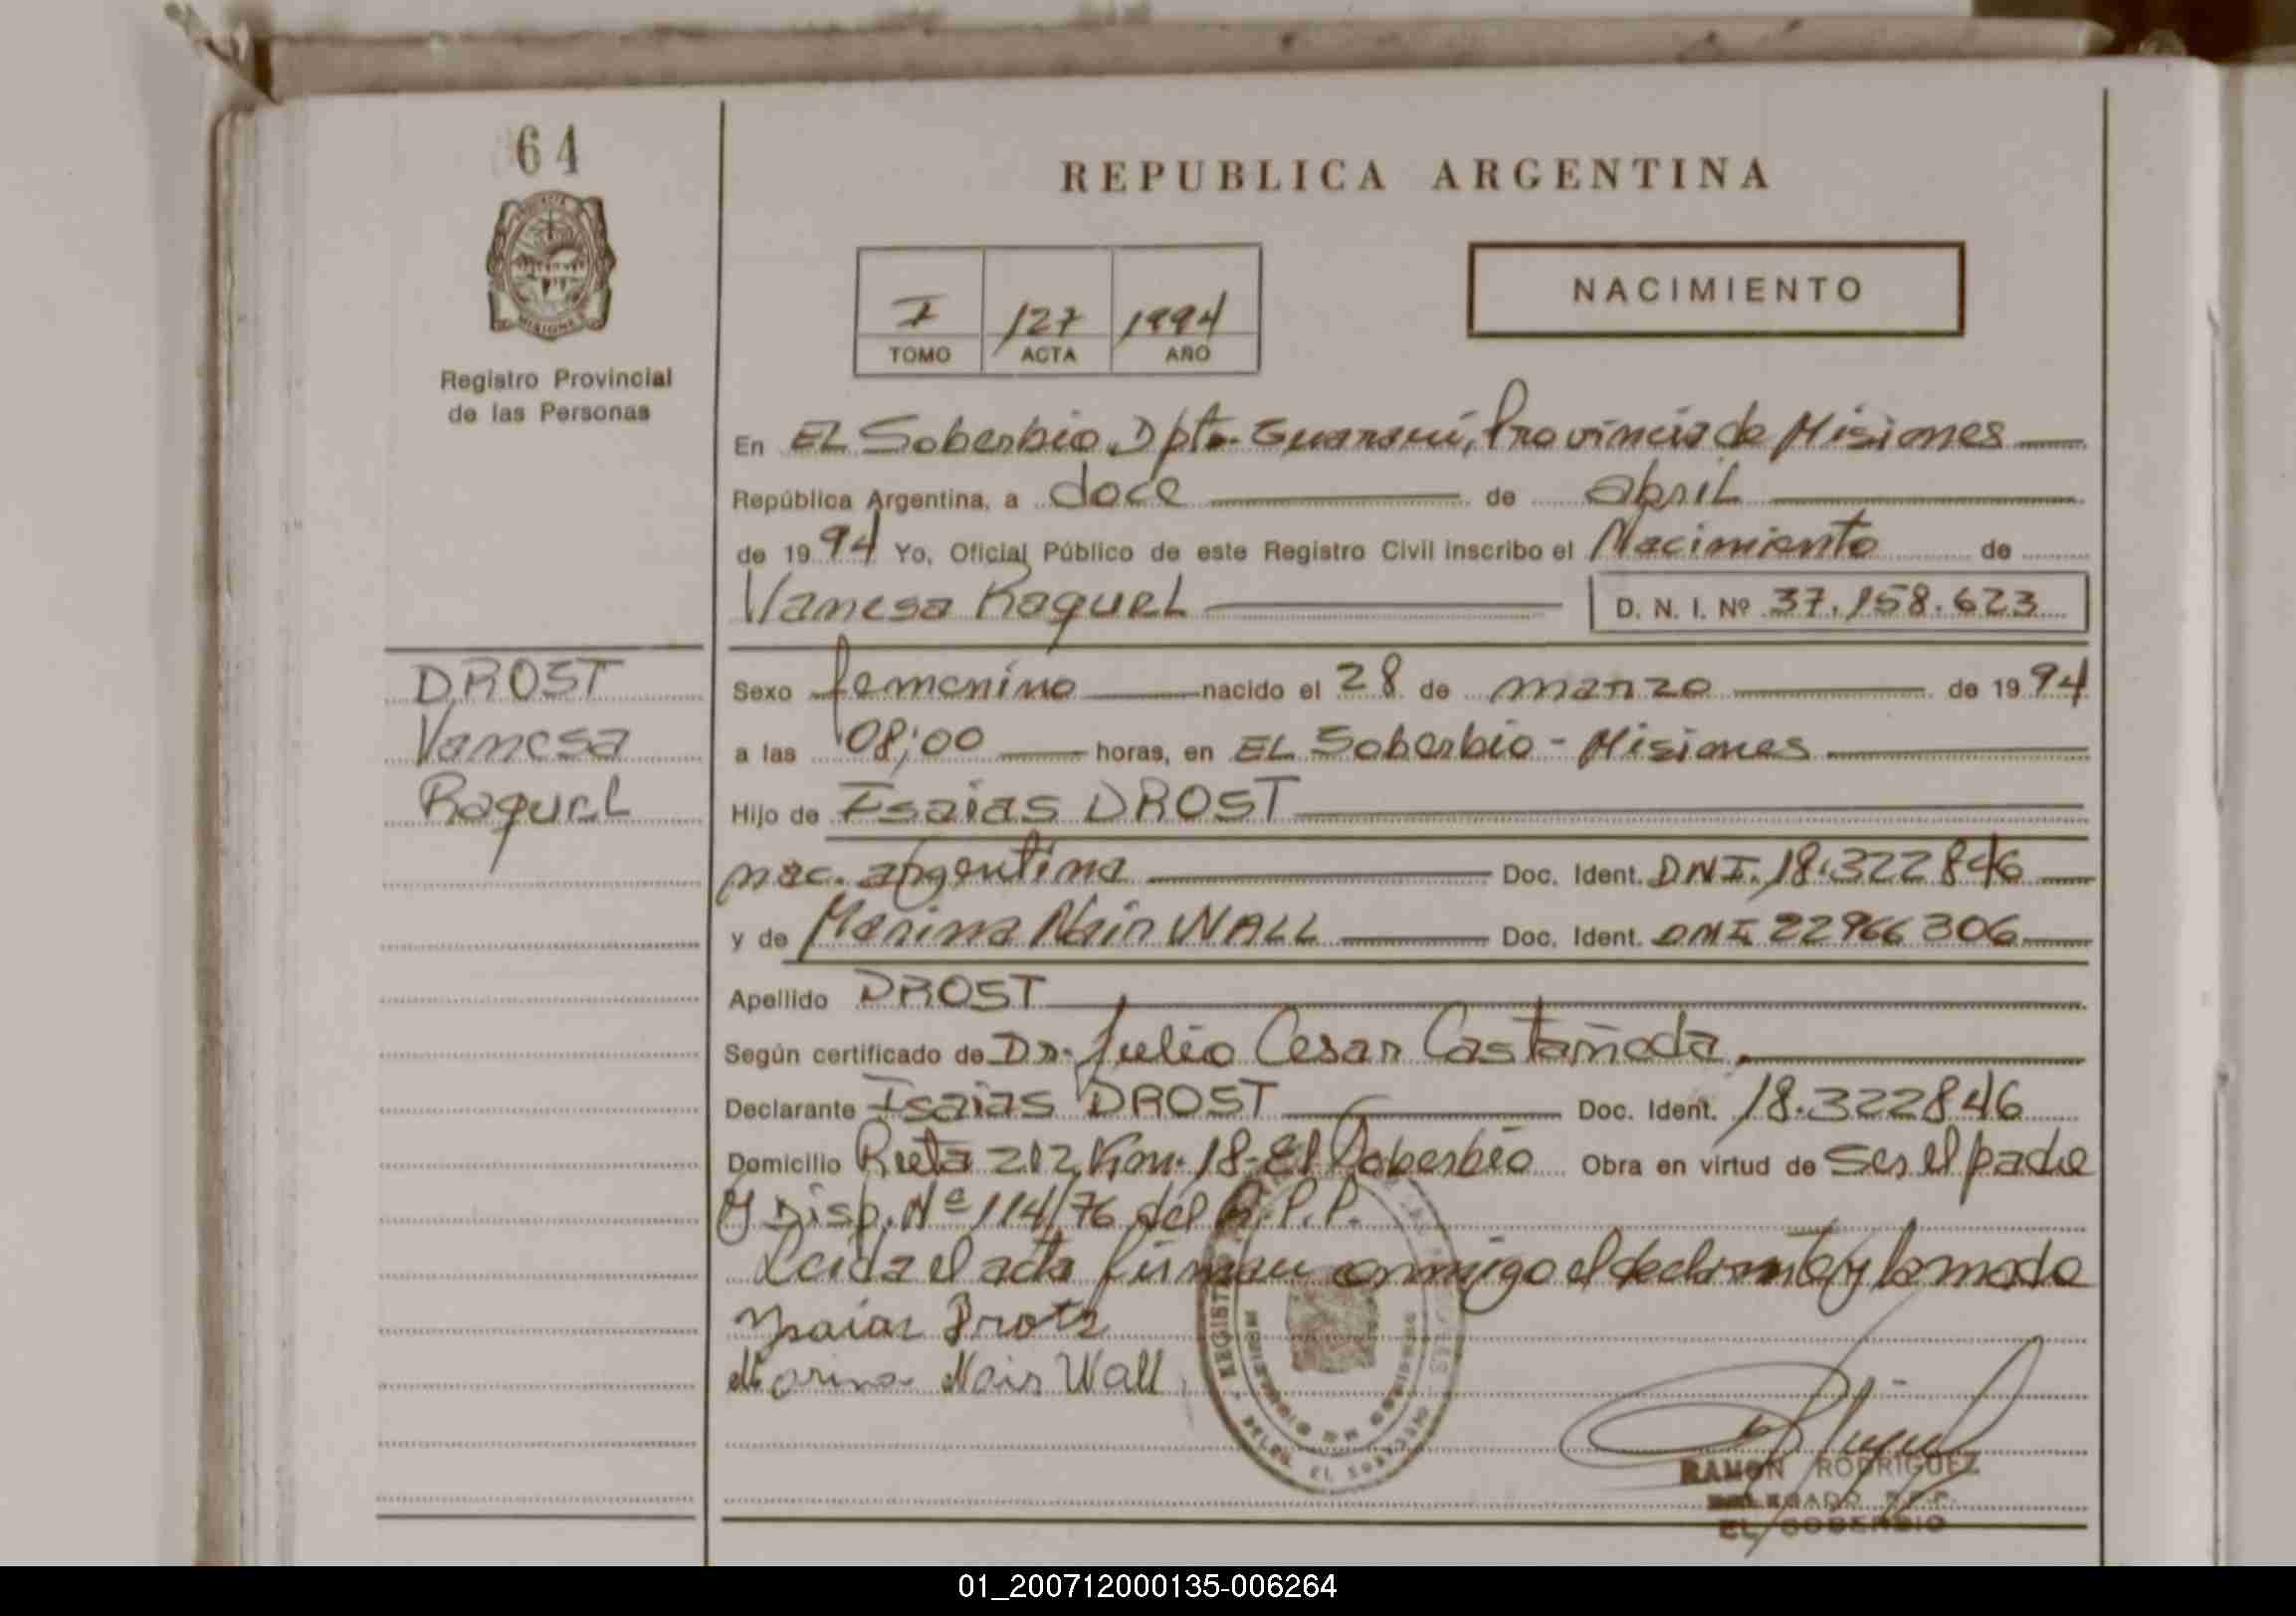 64
REPUBLICA ARGENTINA
NACIMIENTO
I 127 1994
TOMO ACTA AÑO
Registro Provincial
de las Personas
En EL Soberbio, Dpto. Guaraní, Provincia de Misiones
República Argentina, a doce de abril
de 1994 Yo, Oficial Público de este Registro Civil inscribo el Nacimiento de
Vanesa Raquel D. N. I. Nº 37.158.623
DROST
Vanesa
Raquel
Sexo femenino nacido el 28 de marzo de 1994
a las 08;00 horas, en EL Soberbio - Misiones
Hijo de Isaias DROST
nac. argentina Doc. Ident. DNI. 18.322846
y de Marina Nair WALL Doc. Ident. DNI 22966306
Apellido DROST
Según certificado de Dr. Julio Cesar Castañeda.
Declarante Isaias DROST Doc. Ident. 18.322846
Domicilio Ruta 212 Km. 18-El Soberbio Obra en virtud de Ser el padre
y Disp. Nº 114/76 del R.P.P.
Leida el acta firman conmigo el declarante y la madre
Ysaias Drotz
Marina Nair Wall
RAMON RODRIGUEZ
DELEGADO R.P.P.
EL SOBERBIO
01_200712000135-006264